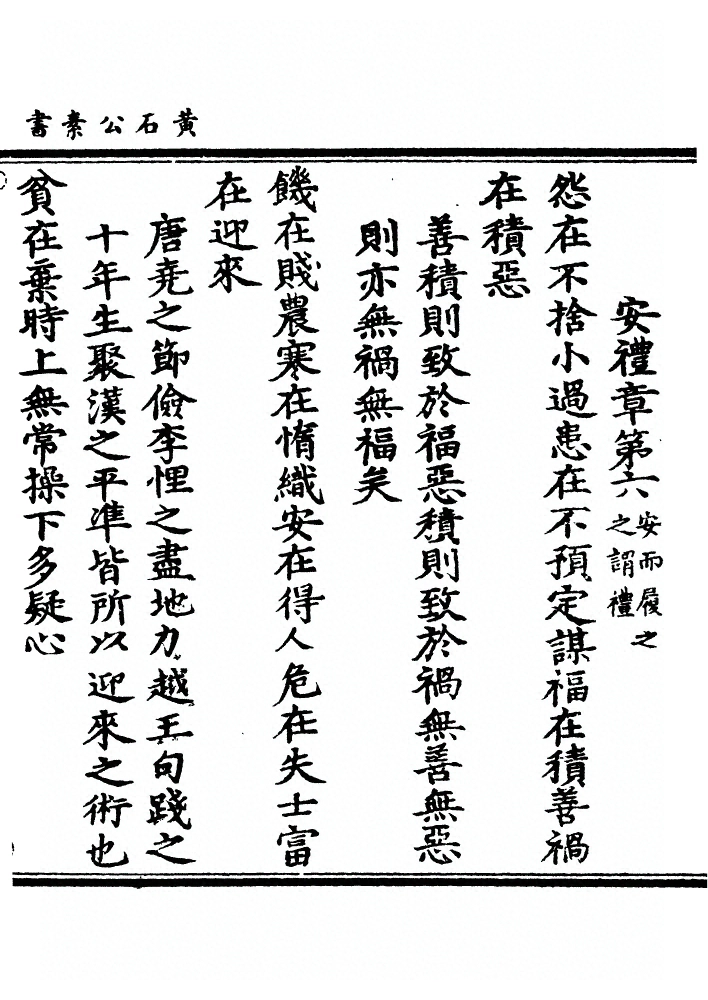 黃石公素書
安禮章第六 安而履之之謂禮
怨在不捨小過患在不預定謀福在積善禍
在積惡
善積則致於福惡積則致於禍無善無惡
則亦無禍無福矣
饑在賤農寒在惰織安在得人危在失士富
在迎來
唐堯之節儉李悝之盡地力越王句踐之
十年生聚漢之平準皆所以迎來之術也
貧在棄時上無常操下多疑心